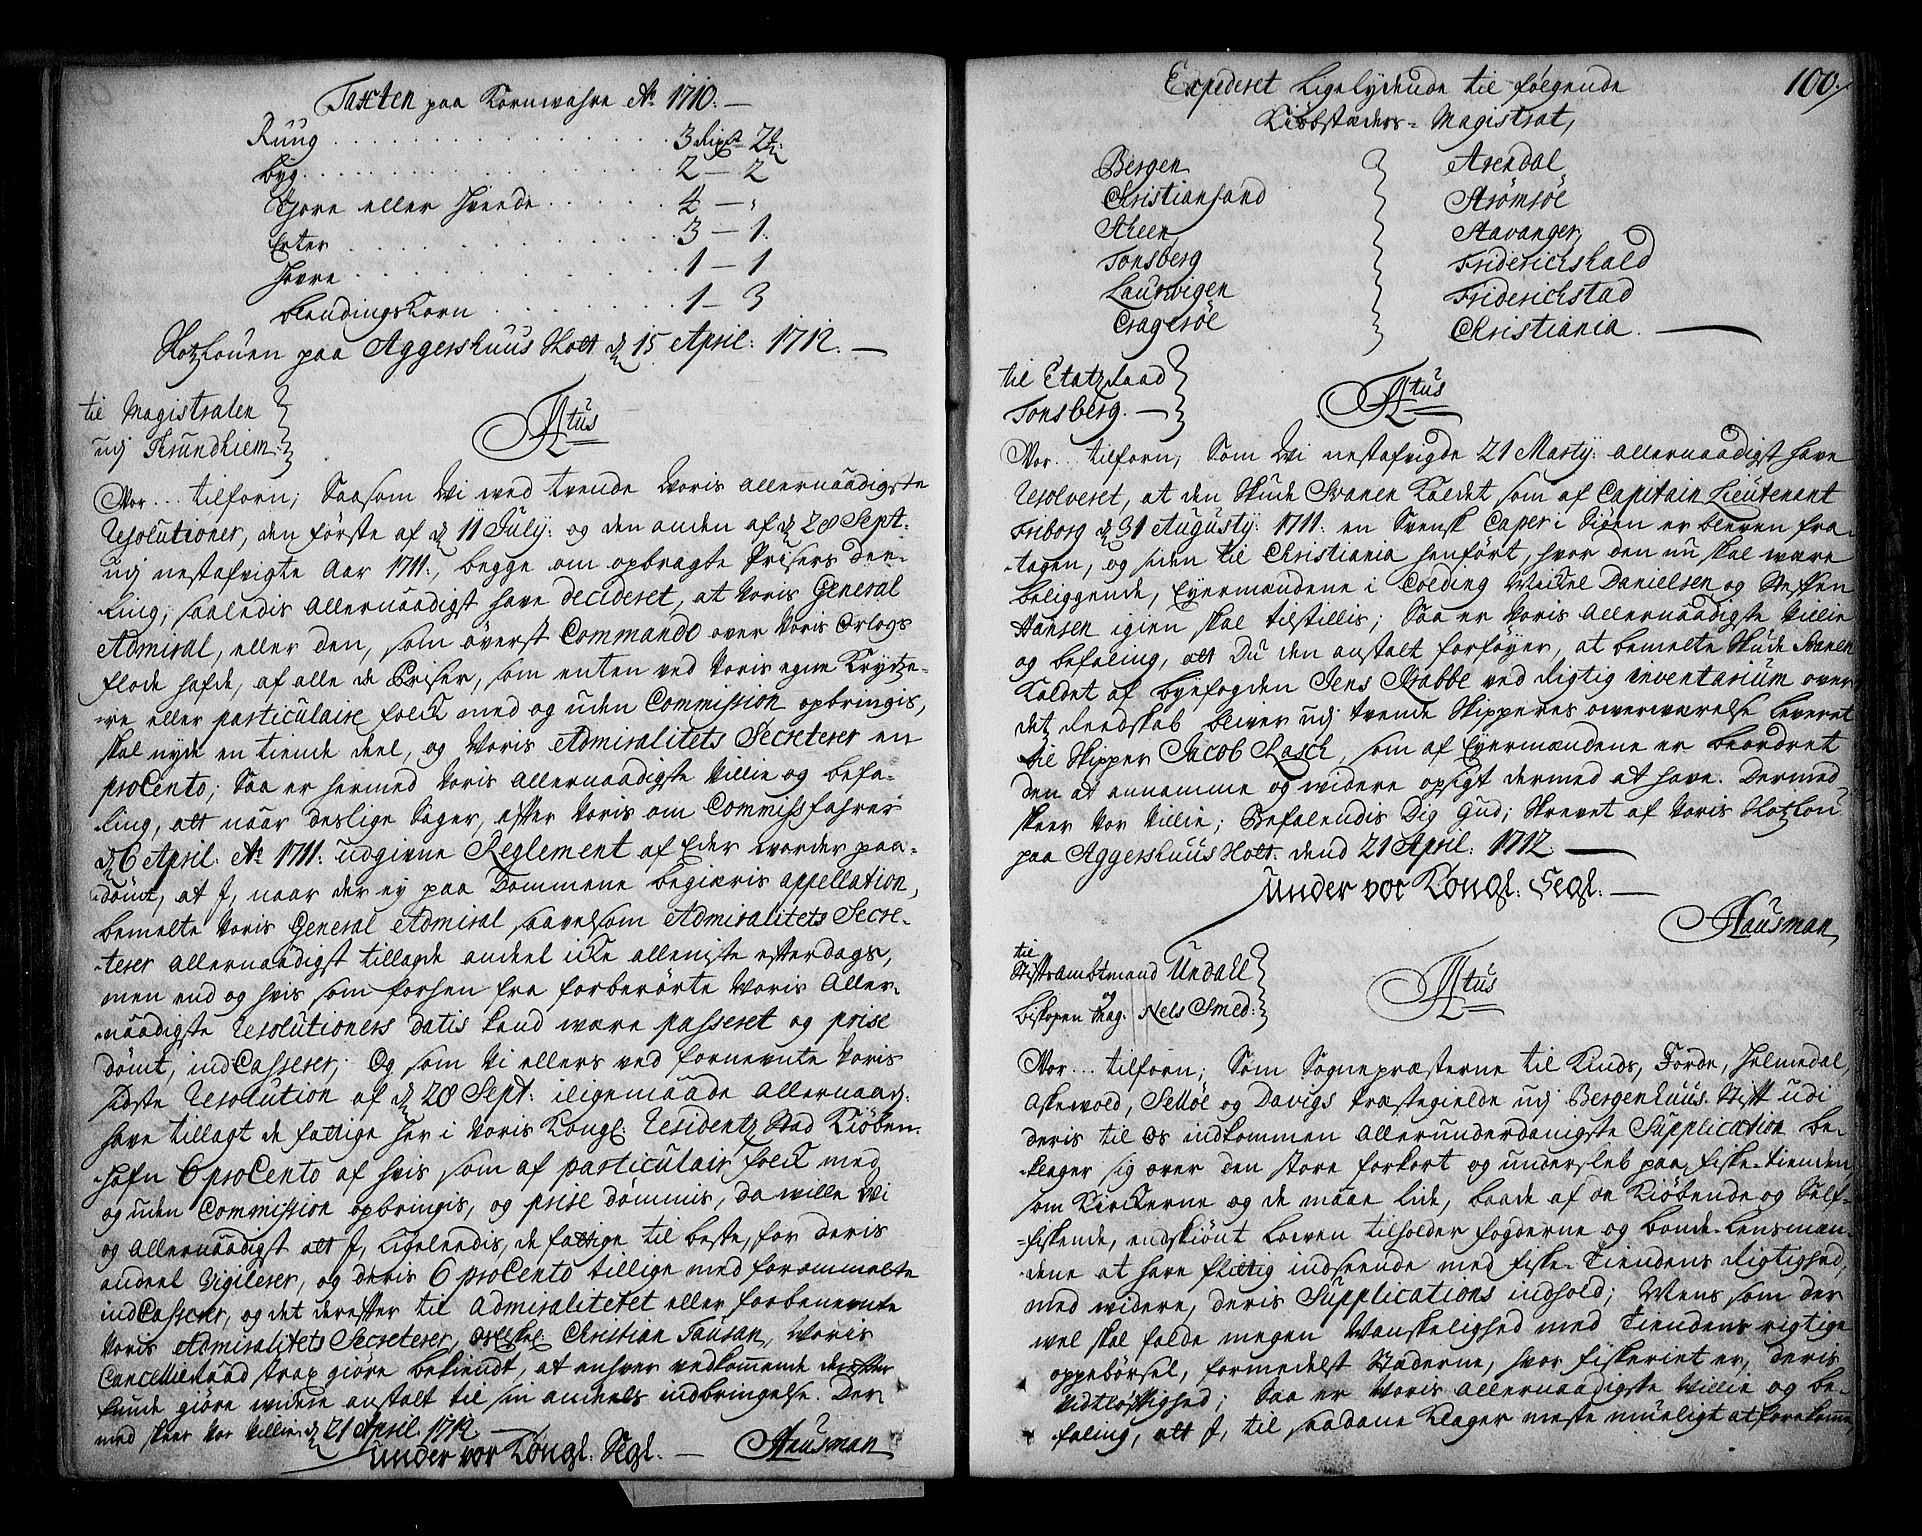 Taxten paa Kornwahre Aō 1710. —
Ruug . . . . . . . . . 3 Rixdr 2
Byg . . . . . . . . . 2 — 2
Gjore eller Hvede . . . . . 4 — "
Erter . . . . . . . . . 3 — 1.
Havre . . . . . . . . . 1 — 1
Blandings Korn . . . . . . 1 — 3
Slotzlouen paa Aggershuus Slott d 15 April: 1712. —
til Magistraten
udj Trundhiem.
Atus
Vor... tilforn; Saasom Wi wed tvende Voris allernaadigste
Resolutioner, den første af d 11 July: og den anden af d 28 Sept:
udj nestafvigte Aar 1711., begge om opbragte Prisers Dee-
-ling, saaledis allernaadigst have decideret, at Voris General
Admiral, eller den, som överst Commando over Voris Orlogs
flode hafde, af alle de Priser, som enten ved Voris egne Krydtze-
-re eller particulaire folck med og uden Commission opbringis,
skal nyde en tiende deel, og Voris Admiralitets Secreterer en
proCento; Saa er hermed Voris allernaadigste Villie og befa-
-ling, att naar deslige Sager, efter Voris om Commissfahrer
d 6 April. Aō 1711. udgivne Reglement af Eder worder paa-
-dömt, at I, naar der ey paa Dommene begiæris appellation,
bemelte Voris General Admiral saavelsom Admiralitets Secre-
-terer allernaadigst tillagde andeel icke alleniste efterdags,
men end og hvis som forhen fra forberörte Voris Aller-
-naadigste Resolutioners datis kand wære passeret og prise
dömt, indCasserer; Og som Vi ellers ved fornevnte Voris
sidste Resolution af d 28 Sept: iligemaade Allernaad:
have tillagt de fattige her i Voris Kongl: Residentz Stad Kiöben-
-hafn 6 proCento af hvis som af particulair folck med
og uden Commission opbringis, og prise dömmis, da wille Wi
og Allernaadigst att I, ligeledis, de fattige til beste, for deris
andeel Vigilerer, og deris 6 proCento tillige med forommelte
indCasserer, og det derefter til Admiralitetet eller forbenevnte
Voris Admiralitets Secreterer, Christian Tausan, Voris
CancellieRaad strax giöre bekiendt, at enhver vedkommende derefter
kunde giöre widere anstalt til sin andeels indbringelse. Der
med skeer Vor Villie. d 21 April. 1712 —
Under vor Kongl. Segl. — Hausman

Expederet Ligelydende til følgende 100.
Kiöbstæders Magistrat,
Bergen
Christiansand
Scheen
Tonsberg
Laurwigen
Cragerøe
Arendal
Strömsöe
Stavanger
Friderichshald
Friderichstad
Christiania. —
til EtatzRaad
Tonsberg. —
Atus
Vor... tilforn; Som Wi nestafvigde 21 Marty: allernaadigst have
Resolveret, at den Skude Svanen Kaldet, som af Capitain Lieutenant
Friborg d 31 Augusty: 1711. en Svensk Caper i Siöen er bleven fra-
-tagen, og siden til Christiania henfört, hvor den nu skal være
beliggende, Eyermændene i Colding Mickel Danielsen og Steffen
Hansen igien skal tilstillis; Saa er Voris allernaadigste Villie
og befaling, att Du den anstalt forföyer, at bemelte Skude Svanen
Kaldet af byefogden Jens Krabbe ved Rigtig inventarium over
det Reedskab bliver udj tvende Skipperes overwærelse leveret
til Skipper Jacob Rasch, som af Eyermændene er beordret
den at annamme og widere opsigt dermed at have. Dermed
skeer Vor Villie; Befalendis Dig Gud; Skrevet af Voris Slotzlou
paa Aggershuus Slott. dend 21 April. 1712. —
Under vor Kongl. Segl. —
Hausman
til
Stiftsambtmand Undall
og
Biskopen Mag. Nels Smed:
Atus
Vor... tilforn; Som Sognepræsterne til Kinds, Fordr, Holmedal,
Askevold, Selløe og Davigs Præstegielde udj Bergenhuus Stift udi
deris til Os indkommen allerunderdanigste Supplication be-
-klager sig over den store forkort og undersleb paa fiske-tienden
som Kirckerne og de maae lide, baade af de Kiöbende og Self-
-fiskende, endskiönt Loven tilholder fogderne og bonde-Lensmæn-
-dene at have flittig indseende med fiske-Tiendens Rigtighed,
med widere, deris Supplications indhold; Mens som der
wel skal falde megen Vanskelighed med Tiendens rigtige
oppebörsel, formedelst Stæderne, hvor fiskeriet er, deris
vidtløftighed; Saa er Voris allernaadigste Villie og be-
faling, att I, til saadane Klager meste mueligt at forekomme,